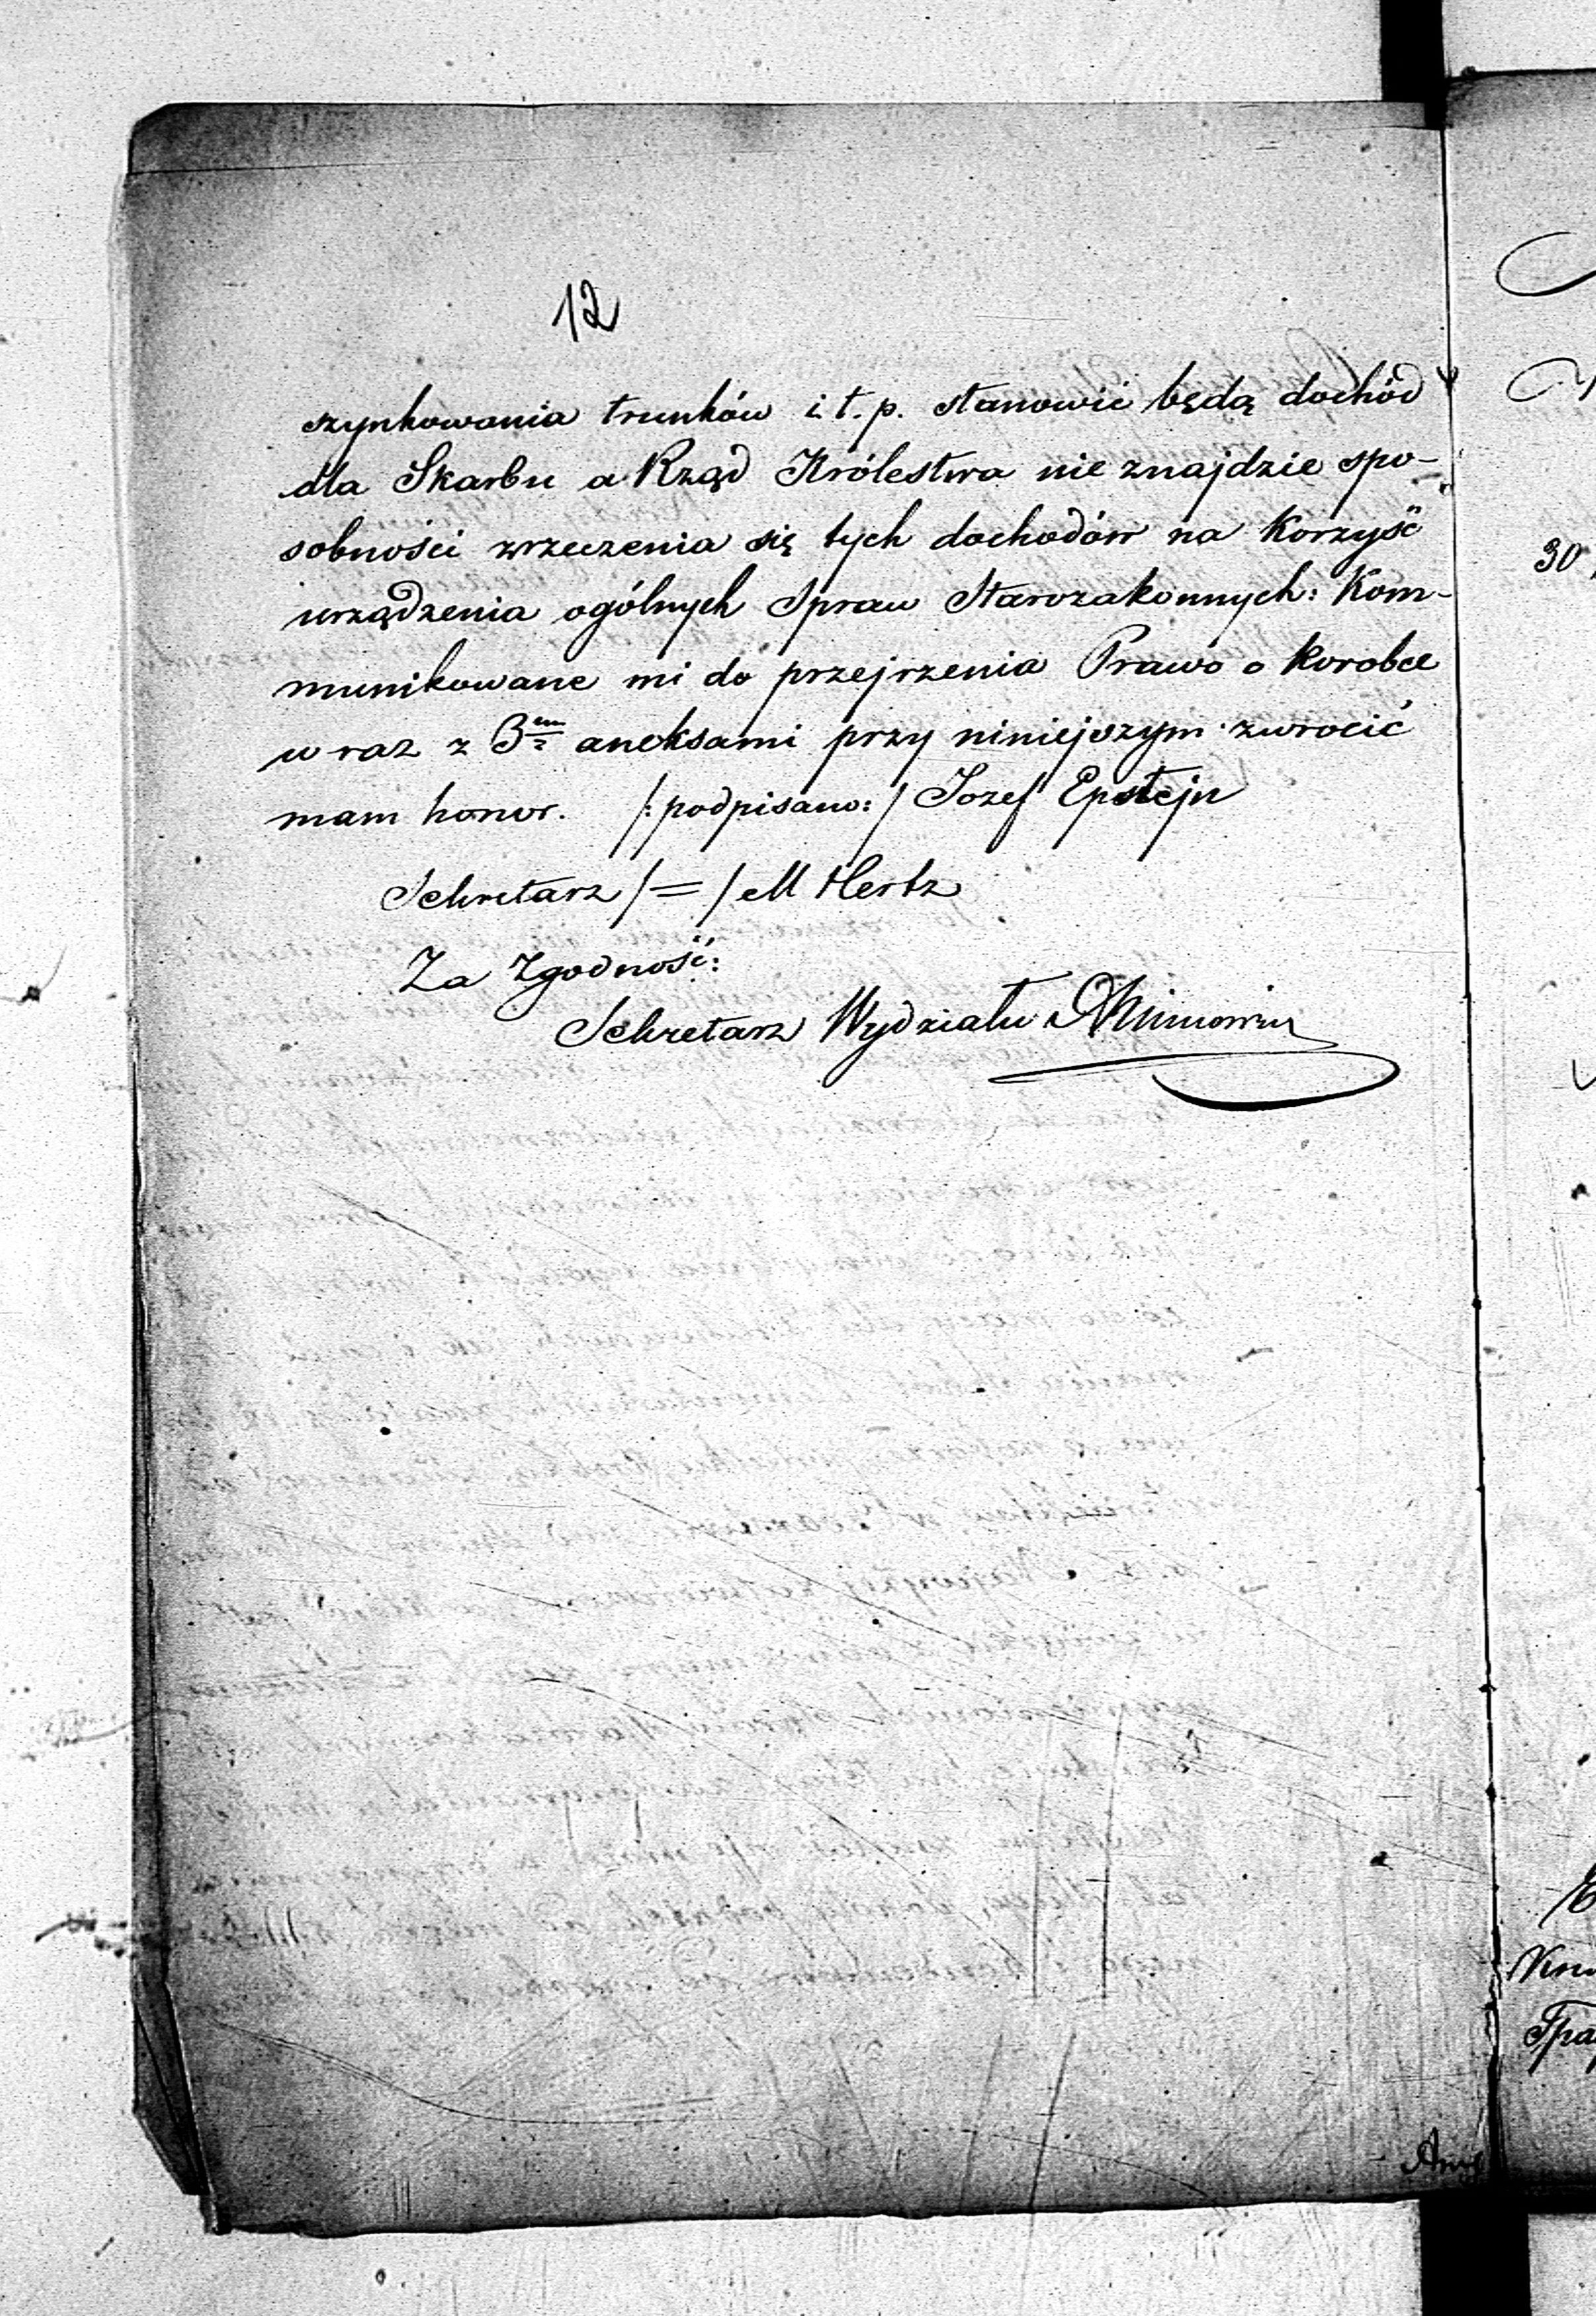 12
szynkowania trunków i t. p. stanowić będą dochód
dla Skarbu a Rząd Królestwa nie znajdzie spo-
sobności zrzeczenia się tych dochodów na Korzyść
urządzenia ogólnych Spraw Starozakonnych: Kom-
munikowane mi do przejrzenia Prawo o Korobce
w raz z 3ma aneksami przy niniejszym zwrocić
mam honor. /: podpisano: / Jozef Epstejn
Sekretarz /=/ M Hertz
Za Zgodność:
Sekretarz Wydziału
30